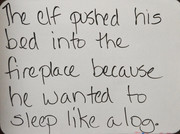 The elf pushed his
bed into the
fireplace because
he wanted to
sleep like a log.